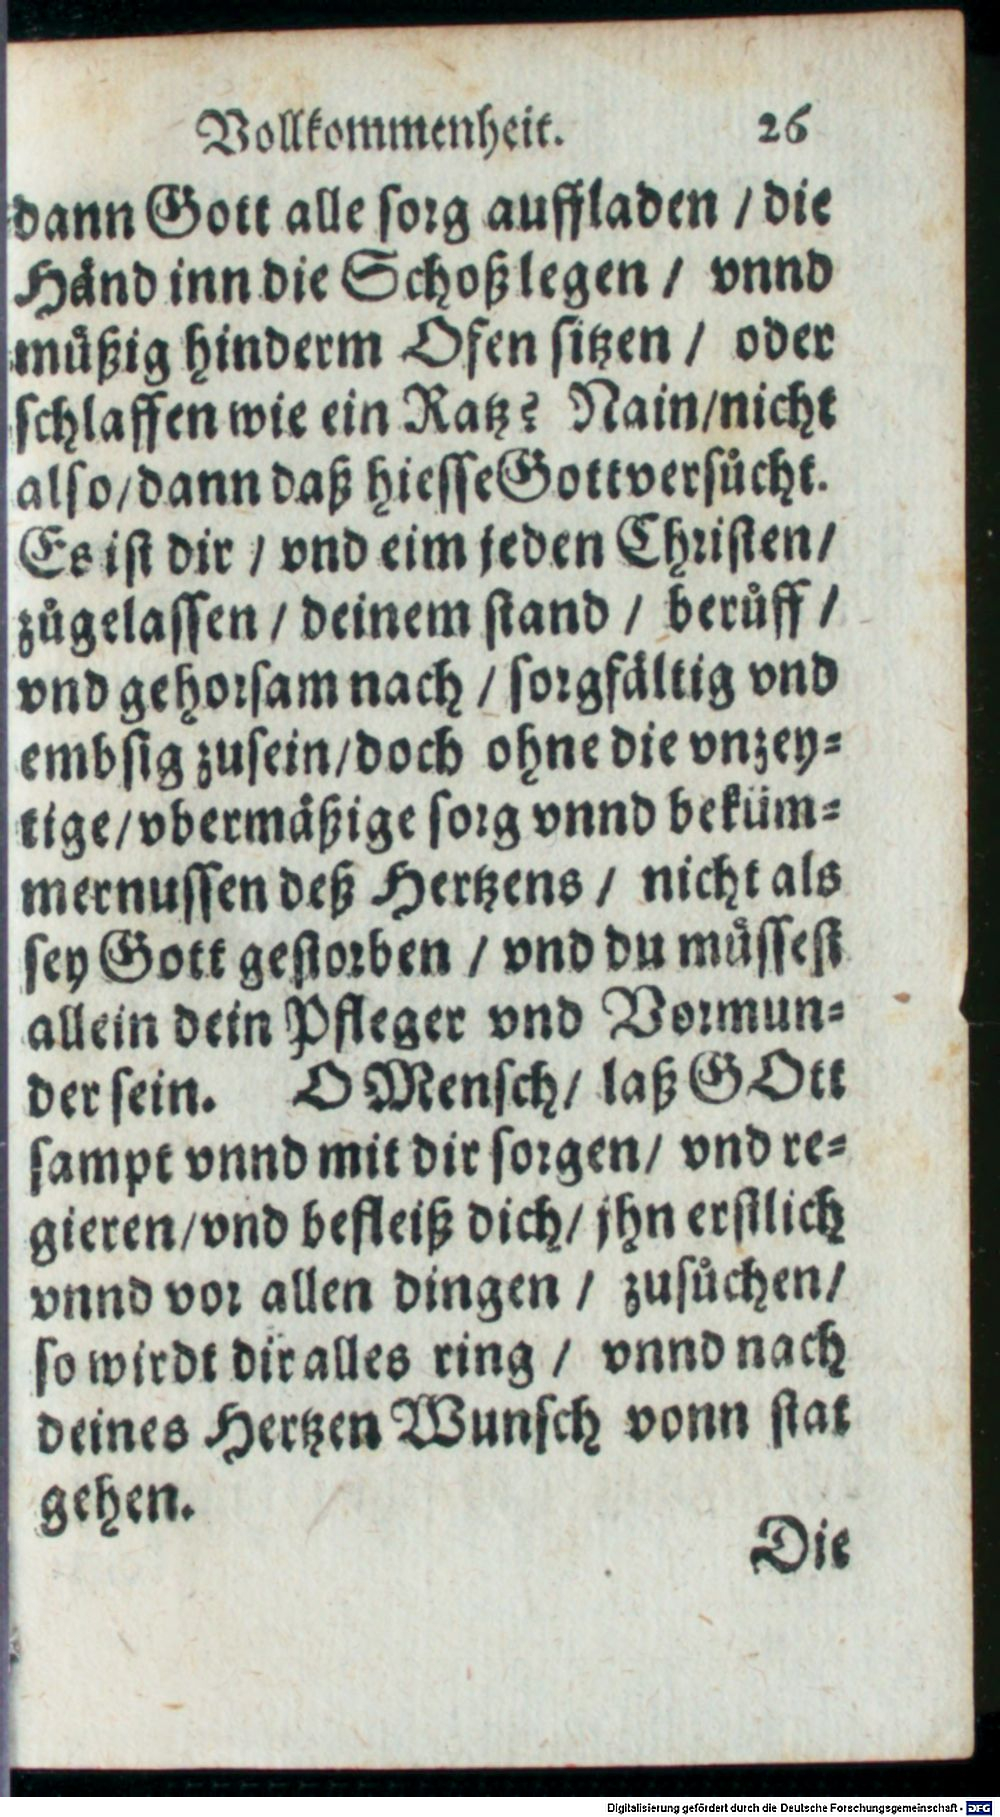 Vollkommenheit. 26
dann Gott alle sorg auffladen / die
Händ inn die Schoß legen / vnnd
müßig hinderm Ofen sitzen / oder
schlaffen wie ein Ratz? Nain/nicht
also/dann daß hiesse Gott versůcht.
Es ist dir / vnd eim jeden Christen/
zůgelassen / deinem stand / berůff /
vnd gehorsam nach / sorgfältig vnd
embsig zusein/doch ohne die vnzey=
tige/vbermäßige sorg vnnd beküm=
mernussen deß Hertzens / nicht als
sey Gott gestorben / vnd du müssest
allein dein Pfleger vnd Vormun=
der sein. O Mensch/ laß GOtt
sampt vnnd mit dir sorgen/ vnd re=
gieren/vnd befleiß dich/ jhn erstlich
vnnd vor allen dingen / zusůchen/
so wirdt dir alles ring / vnnd nach
deines Hertzen Wunsch vonn stat
gehen.
Die
Digitalisierung gefördert durch die Deutsche Forschungsgemeinschaft - DFG